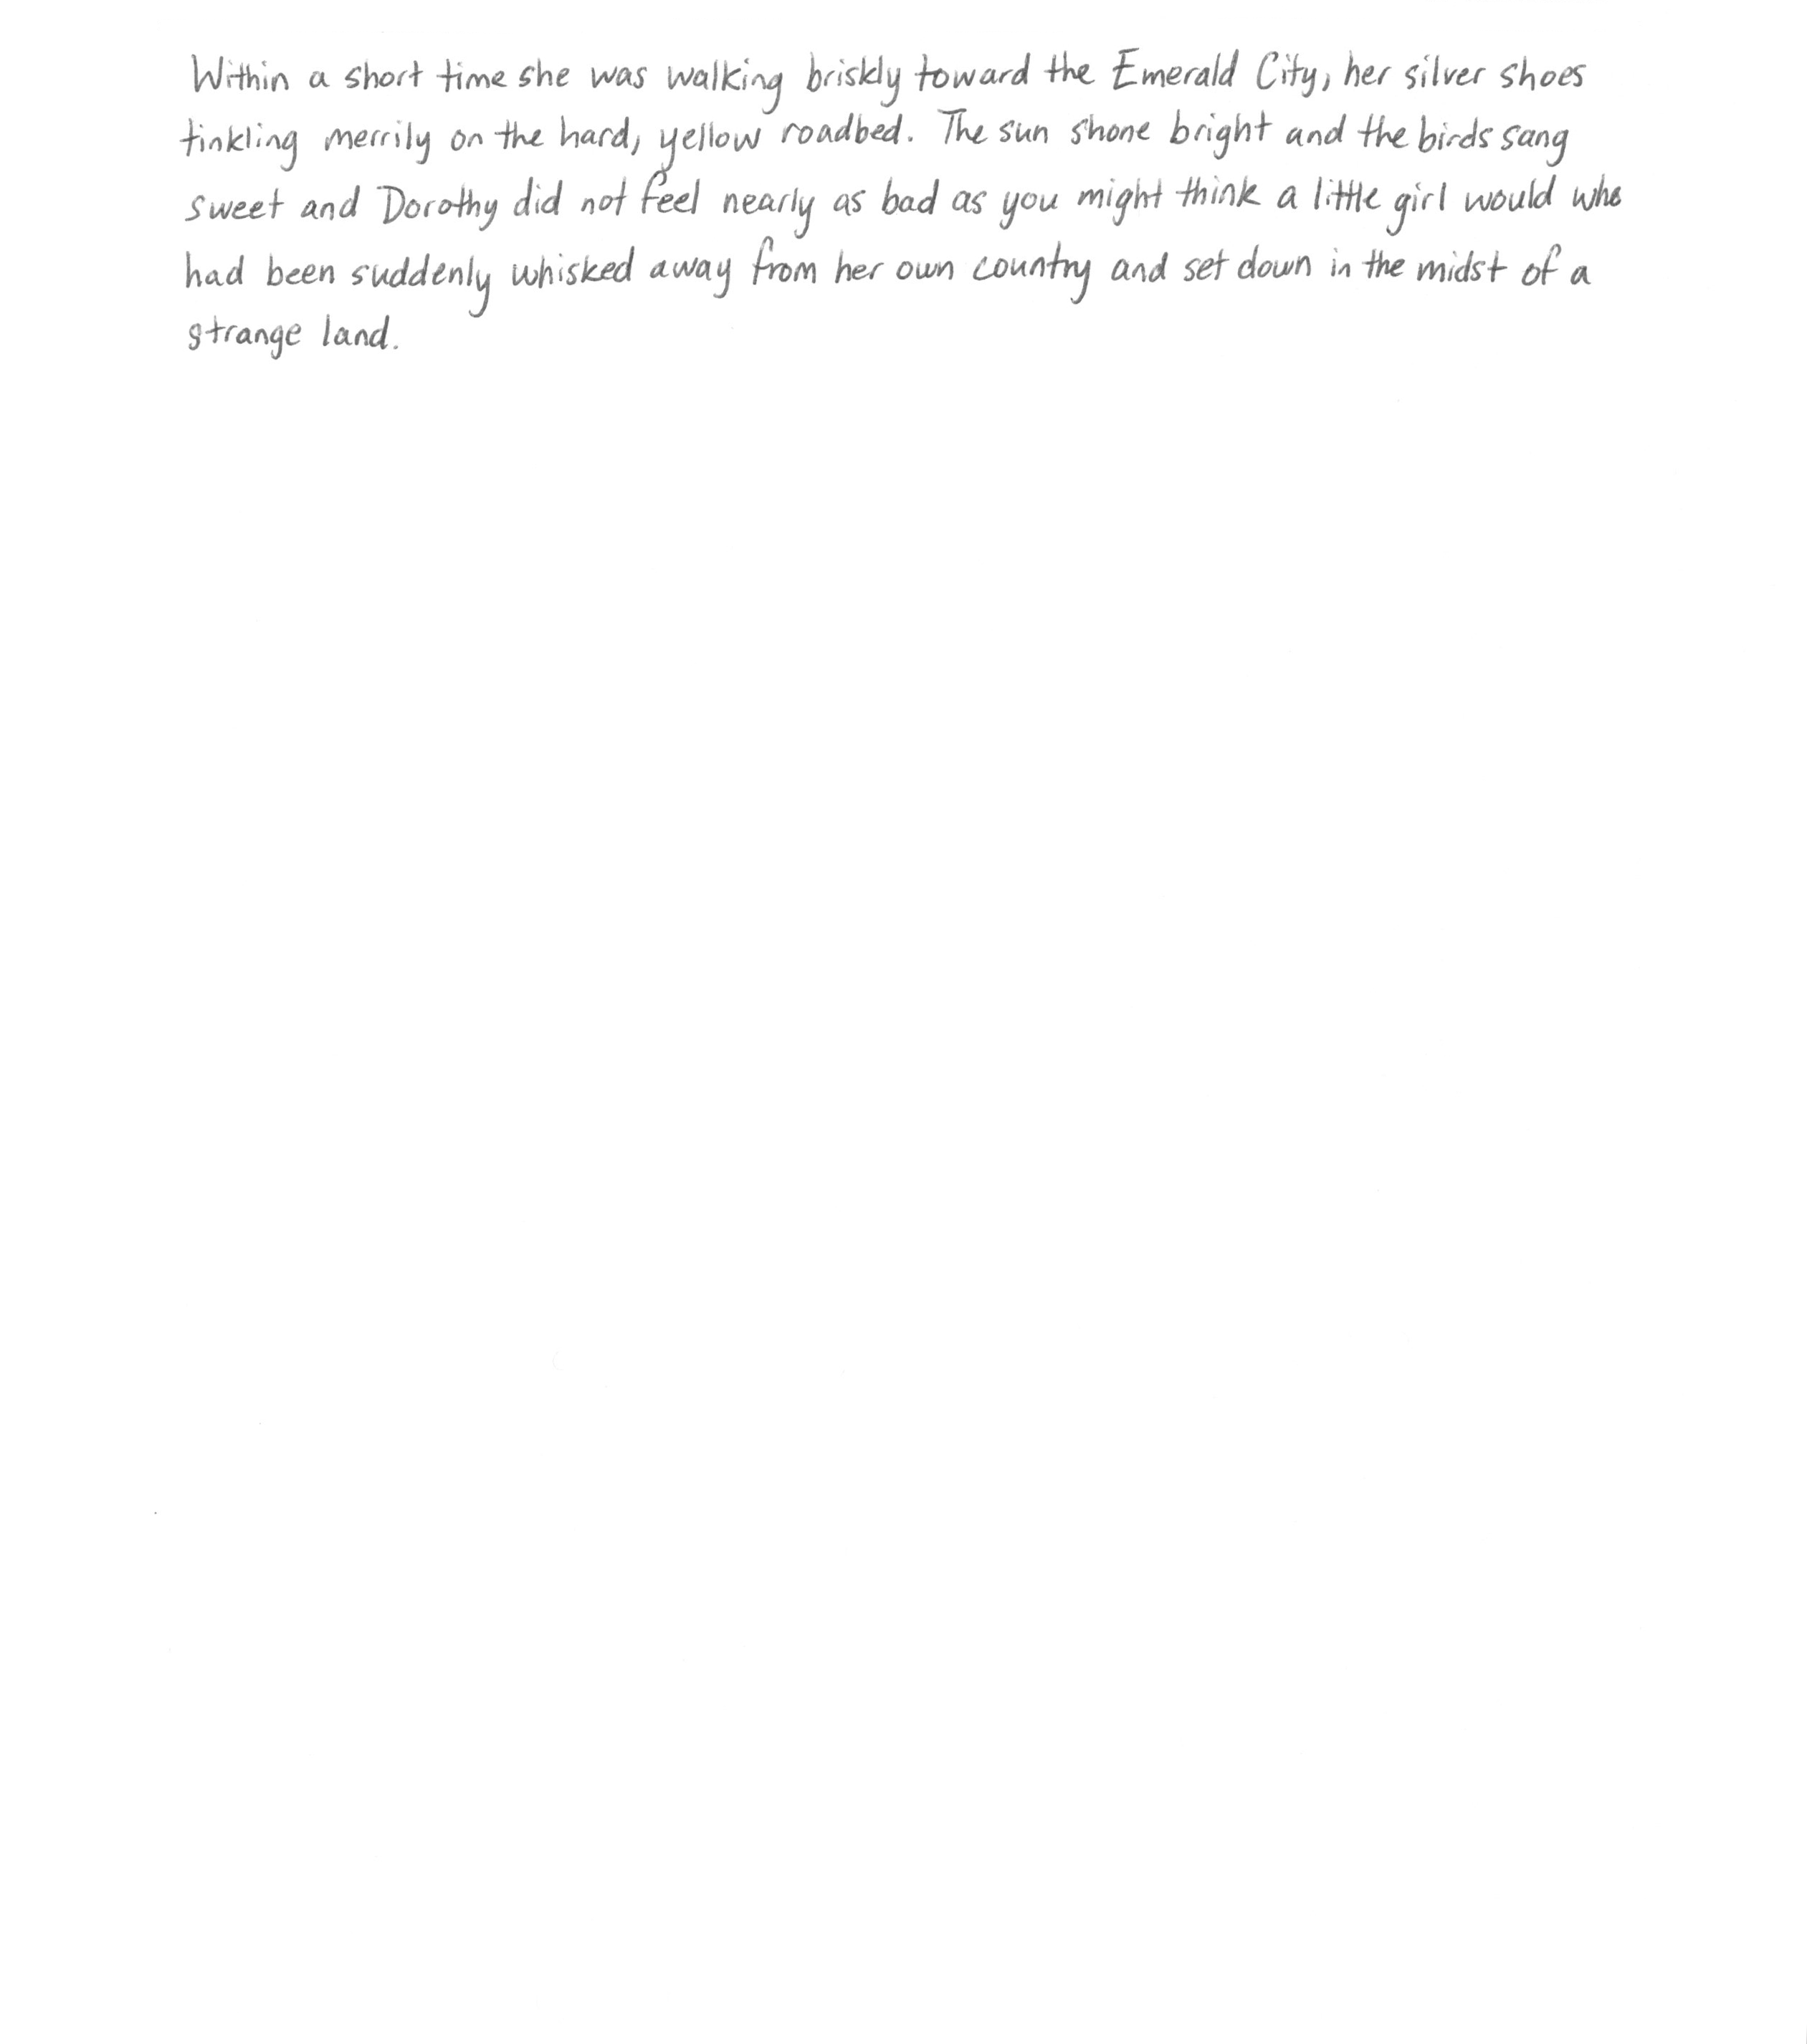 Within a short time she was walking briskly toward the Emerald City, her silver shoes
tinkling merrily on the hard, yellow roadbed. The sun shone bright and the birds sang
sweet and Dorothy did not feel nearly as bad as you might think a little girl would who
had been suddenly whisked away from her own country and set down in the midst of a
strange land.